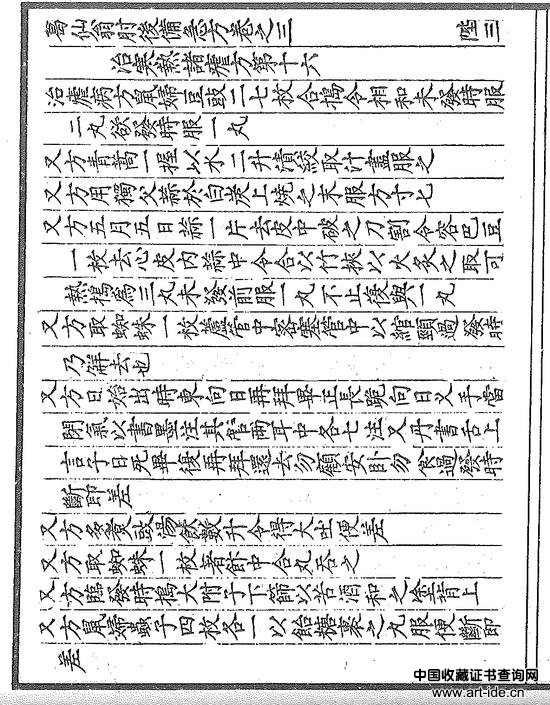 葛仙翁肘後備急方卷之三 陸三
治寒熱諸瘧方第十六
治瘧病方鼠婦豆豉二七枚合搗令相和未發時服
二丸欲發時服一丸
又方青蒿一握以水二升漬絞取汁盡服之
又方用獨父蒜於白炭上燒之末服方寸匕
又方五月五日蒜一片去皮中破之刀割令容巴豆
一枚去心皮內蒜中令合以竹挾以火炙之取可
熱搗為三丸未發前服一丸不止復與一丸
又方取蜘蛛一枚蘆管中密塞管中以綰頸過發時
乃解去也
又方日始出時東向日再拜畢正長跪向日叉手當
閉氣以書墨注其管兩耳中各七注又丹書舌上
言子日死畢復再拜還去勿顧安臥勿食過發時
斷即差
又方多煮豉湯飲數升令得大吐便差
又方取蜘蛛一枚著飯中合丸吞之
又方臨發時搗大附子下篩以苦酒和之塗背上
又方鼠婦蟲子四枚各一以飴糖裹之丸服便斷即
差
中国收藏证书查询网
www.art-ide.cn